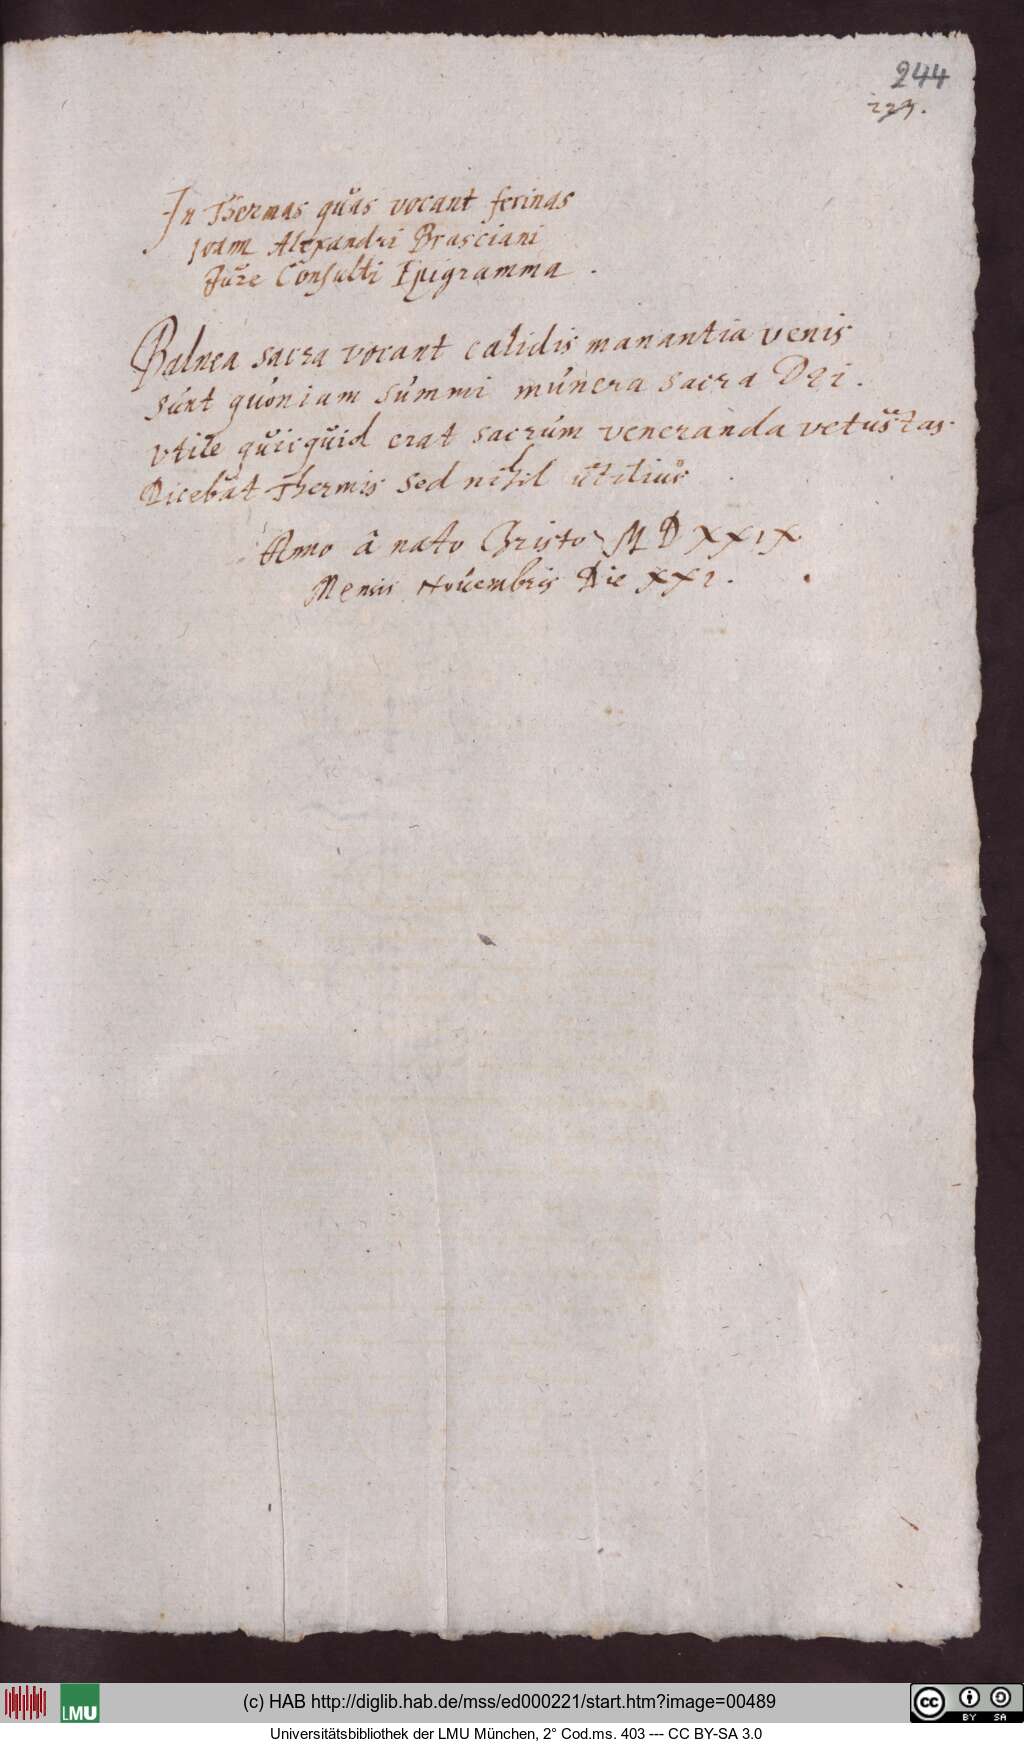 244
229.
In Thermas quas vocant ferinas
Joam Alexandri Brasciani
Jure Consulti Epigramma.
Balnea sacra vocant calidis manantia venis
sunt quoniam summi munera sacra Dei.
vtile quicquid erat sacrum veneranda vetustas.
Dicebat Thermis sed nihil utilius.
Anno â nato Christo MDXXIX
Mensis Nouembris Die XXI.
LMU
(c) HAB http://diglib.hab.de/mss/ed000221/start.htm?image=00489
cc BY SA
Universitätsbibliothek der LMU München, 2° Cod.ms. 403 --- CC BY-SA 3.0